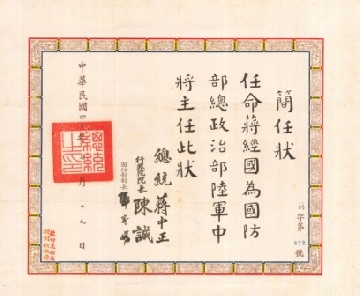 簡任狀
任命蔣經國為國防
部總政治部陸軍中
將主任此狀
總統 蔣中正
行政院院長 陳誠
中華民國四 月 八日
字第
號